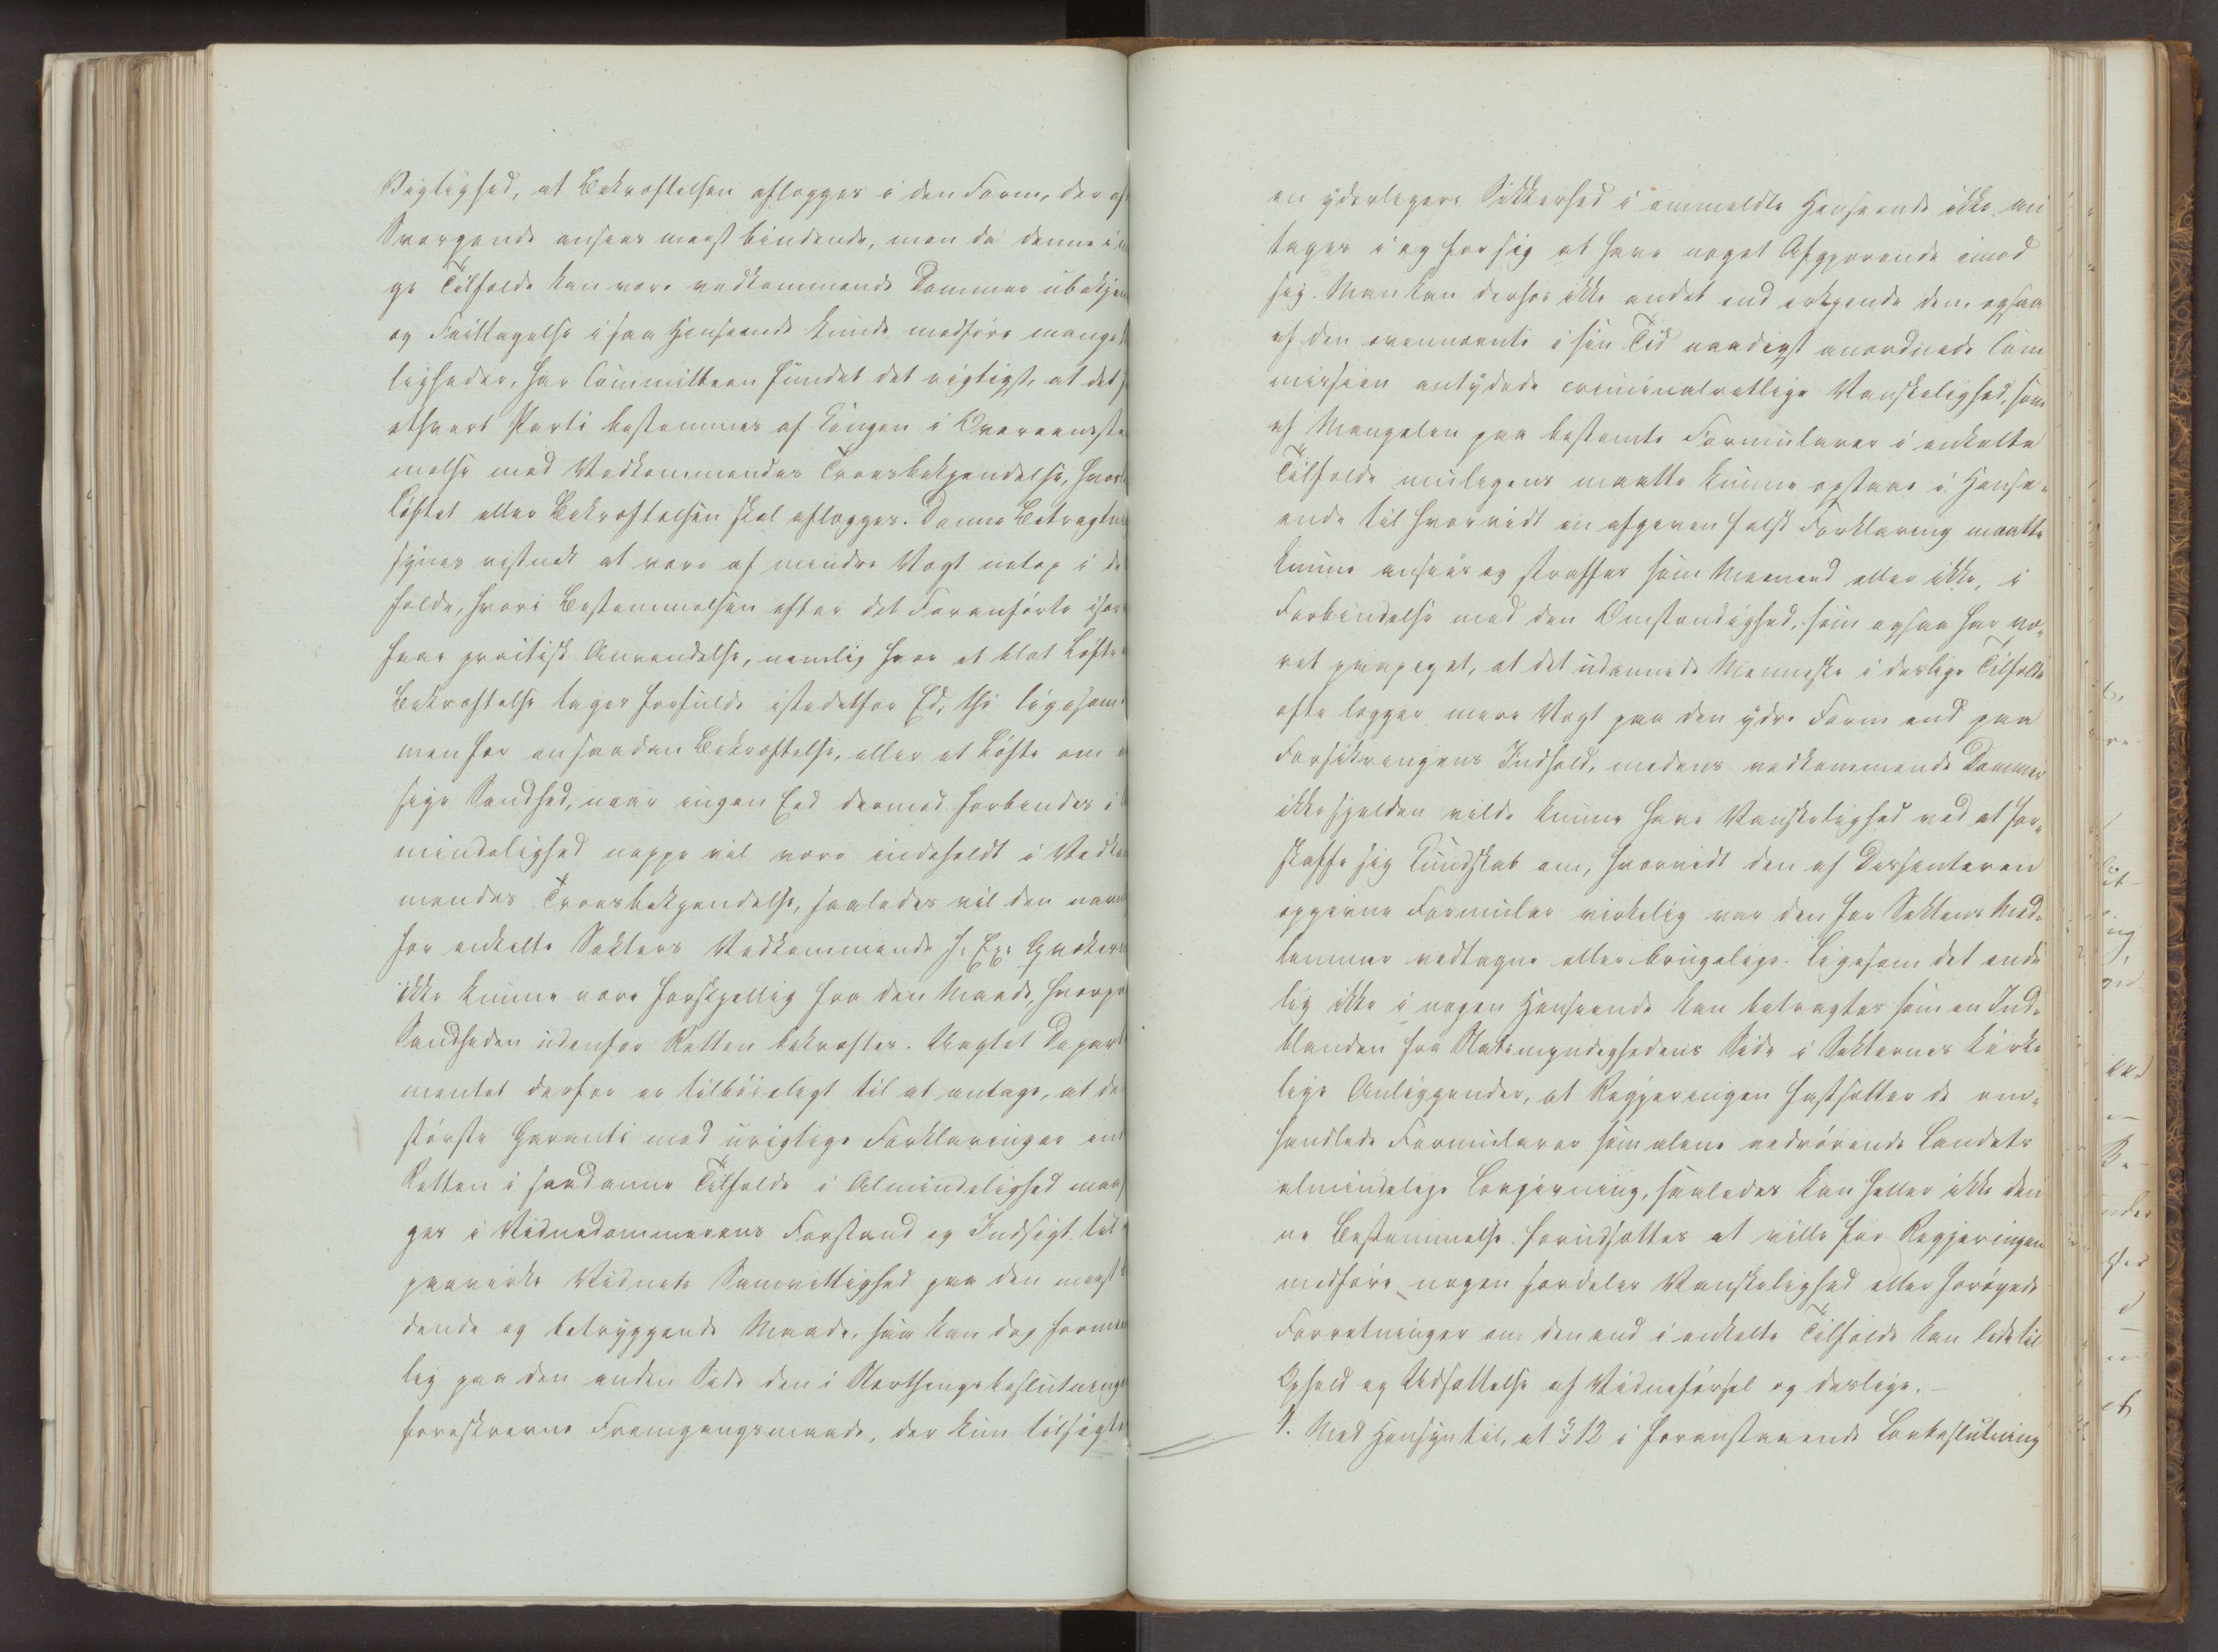 Vigtighed, at Bekræftelsen aflægges i den Form, der af
Sværgende ansees meest bindende, men da denne i
ge Tilfælde kan være vedkommende Dommer ubekjen
og Feiltagelse i saa Henseende kunde medføre mange
ligheder, har Committeen fundet det rigtigst, at det
ethvert Parti bestemmes af Kongen i Overeensste
melse med Vedkommendes Troesbekjendelse, hvor
Løftet eller Bekræftelsen skal aflægges. Denne Betragtn
synes vistnok at være af mindre Vægt netop i de
fælde, hvori Bestemmelsen efter det Foranførte især
faae practisk Anvendelse, nemlig hvor et blot Løfte
Bekræftelse tages forfulde istedetfor Ed, thi ligesom
men for en saadan Bekræftelse, eller et Løfte om
sige Sandhed, naar ingen Eed dermed forbindes i
mindelighed neppe vil være indeholdt i Vedko
mendes Troesbekjendelse, saaledes vil den navn
for enkelte Sekters Vedkommende f. Ex. Qvækere
ikke kunne være forskjellig fra den Maade, hvorpa
Sandheden udenfor Retten bekræftes. Uagtet Depart
mentet derfor er tilbøieligt til at antage, at de
største Garanti mod urigtige Forklaringer
Retten i saadanne Tilfælde i Almindelighed maa
ges i Vidnedommerens Forstand og Indsigt til
paavirke Vidnets Samvittighed paa den meest
dende og betryggende Maade, saa kan dog formen
lig paa den anden Side den i Storthingsbeslutning
foreskrevne Fremgangsmaade, der kun tilsigte
en yderligere Sikkerhed i ommeldte Henseende ikke an
tages i og for sig at have noget Afgjørende imod
sig. Man kan derhos ikke andet end erkjende den, ogsaa
af den ovennævnte i sin Tid naadigst anordnede Com
mission antydede criminalretlige Vanskelighed, som
af Mangelen paa bestemte Formularer i enkelte
Tilfælde muligens maatte kunne opstaae i Hense-
ende til hvorvidt en afgiven falsk Forklaring maatte
kunne ansees og straffes som Meeneed eller ikke, i
Forbindelse med den Omstændighed, som ogsaa har væ-
ret paapeget, at det udannede Menneske i deslige Tilfælde
ofte lægger mere Vægt paa den ydre Form end paa
Forsikringens Indhold, medens vedkommende Dommer
ikke sjelden vilde kunne have Vanskelighed ved at for-
skaffe sig Kundskab om, hvorvidt den af Dissenteren
opgivne Formular virkelig var den for Sektens Med-
lemmer vedtagne eller brugelige. Ligesom det ende
lig ikke i nogen Henseende kan betragtes som en Ind-
blanden fra Statsmyndighedens Side i Sekternes kirke
lige Anliggender, at Regjeringen fastsætter de om-
handlede Formularer som alene vedrørende Landets
almindelige Lovgivning, saaledes kan heller ikke den
ne Bestemmelse forudsættes at ville for Regjeringen
medføre nogen særdeles Vanskelighed eller forøgede
Forretninger om den end i enkelte Tilfælde kan lede til
Ophold og Udsættelse af Vidneførsel og deslige.–
4. Med Hensyn til, at § 12 i foranstaaende Lovbeslutning